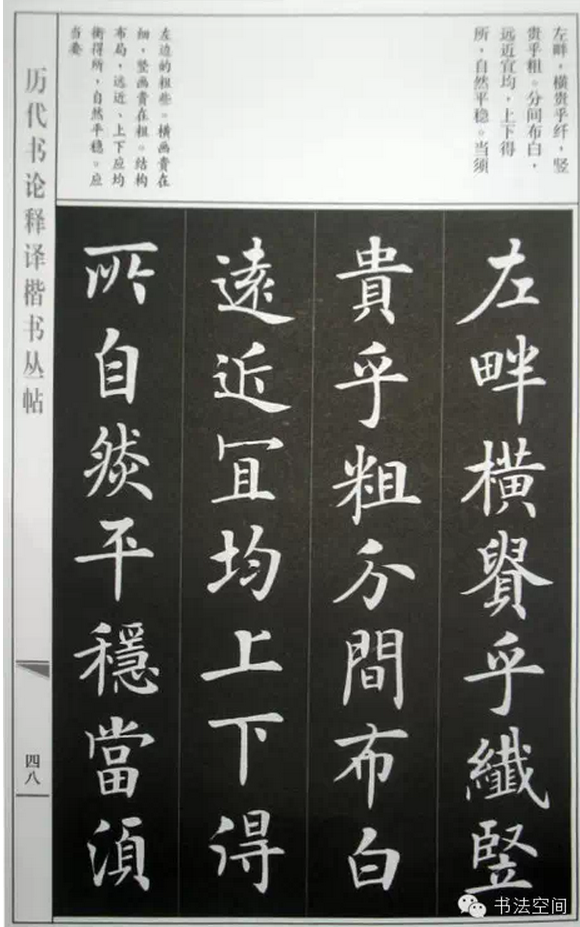 左畔，横贵乎纤，竖
贵乎粗。分间布白，
远近宜均，上下得
所，自然平稳。当须
左边的粗些。横画贵在
细，竖画贵在粗。结构
布局，远近、上下应均
衡得所，自然平稳。应
当要
左畔橫貴乎纖竪
貴乎粗分間布白
遠近宜均上下得
所自然平穩當須
历代书论释译楷书丛帖
四八
书法空间